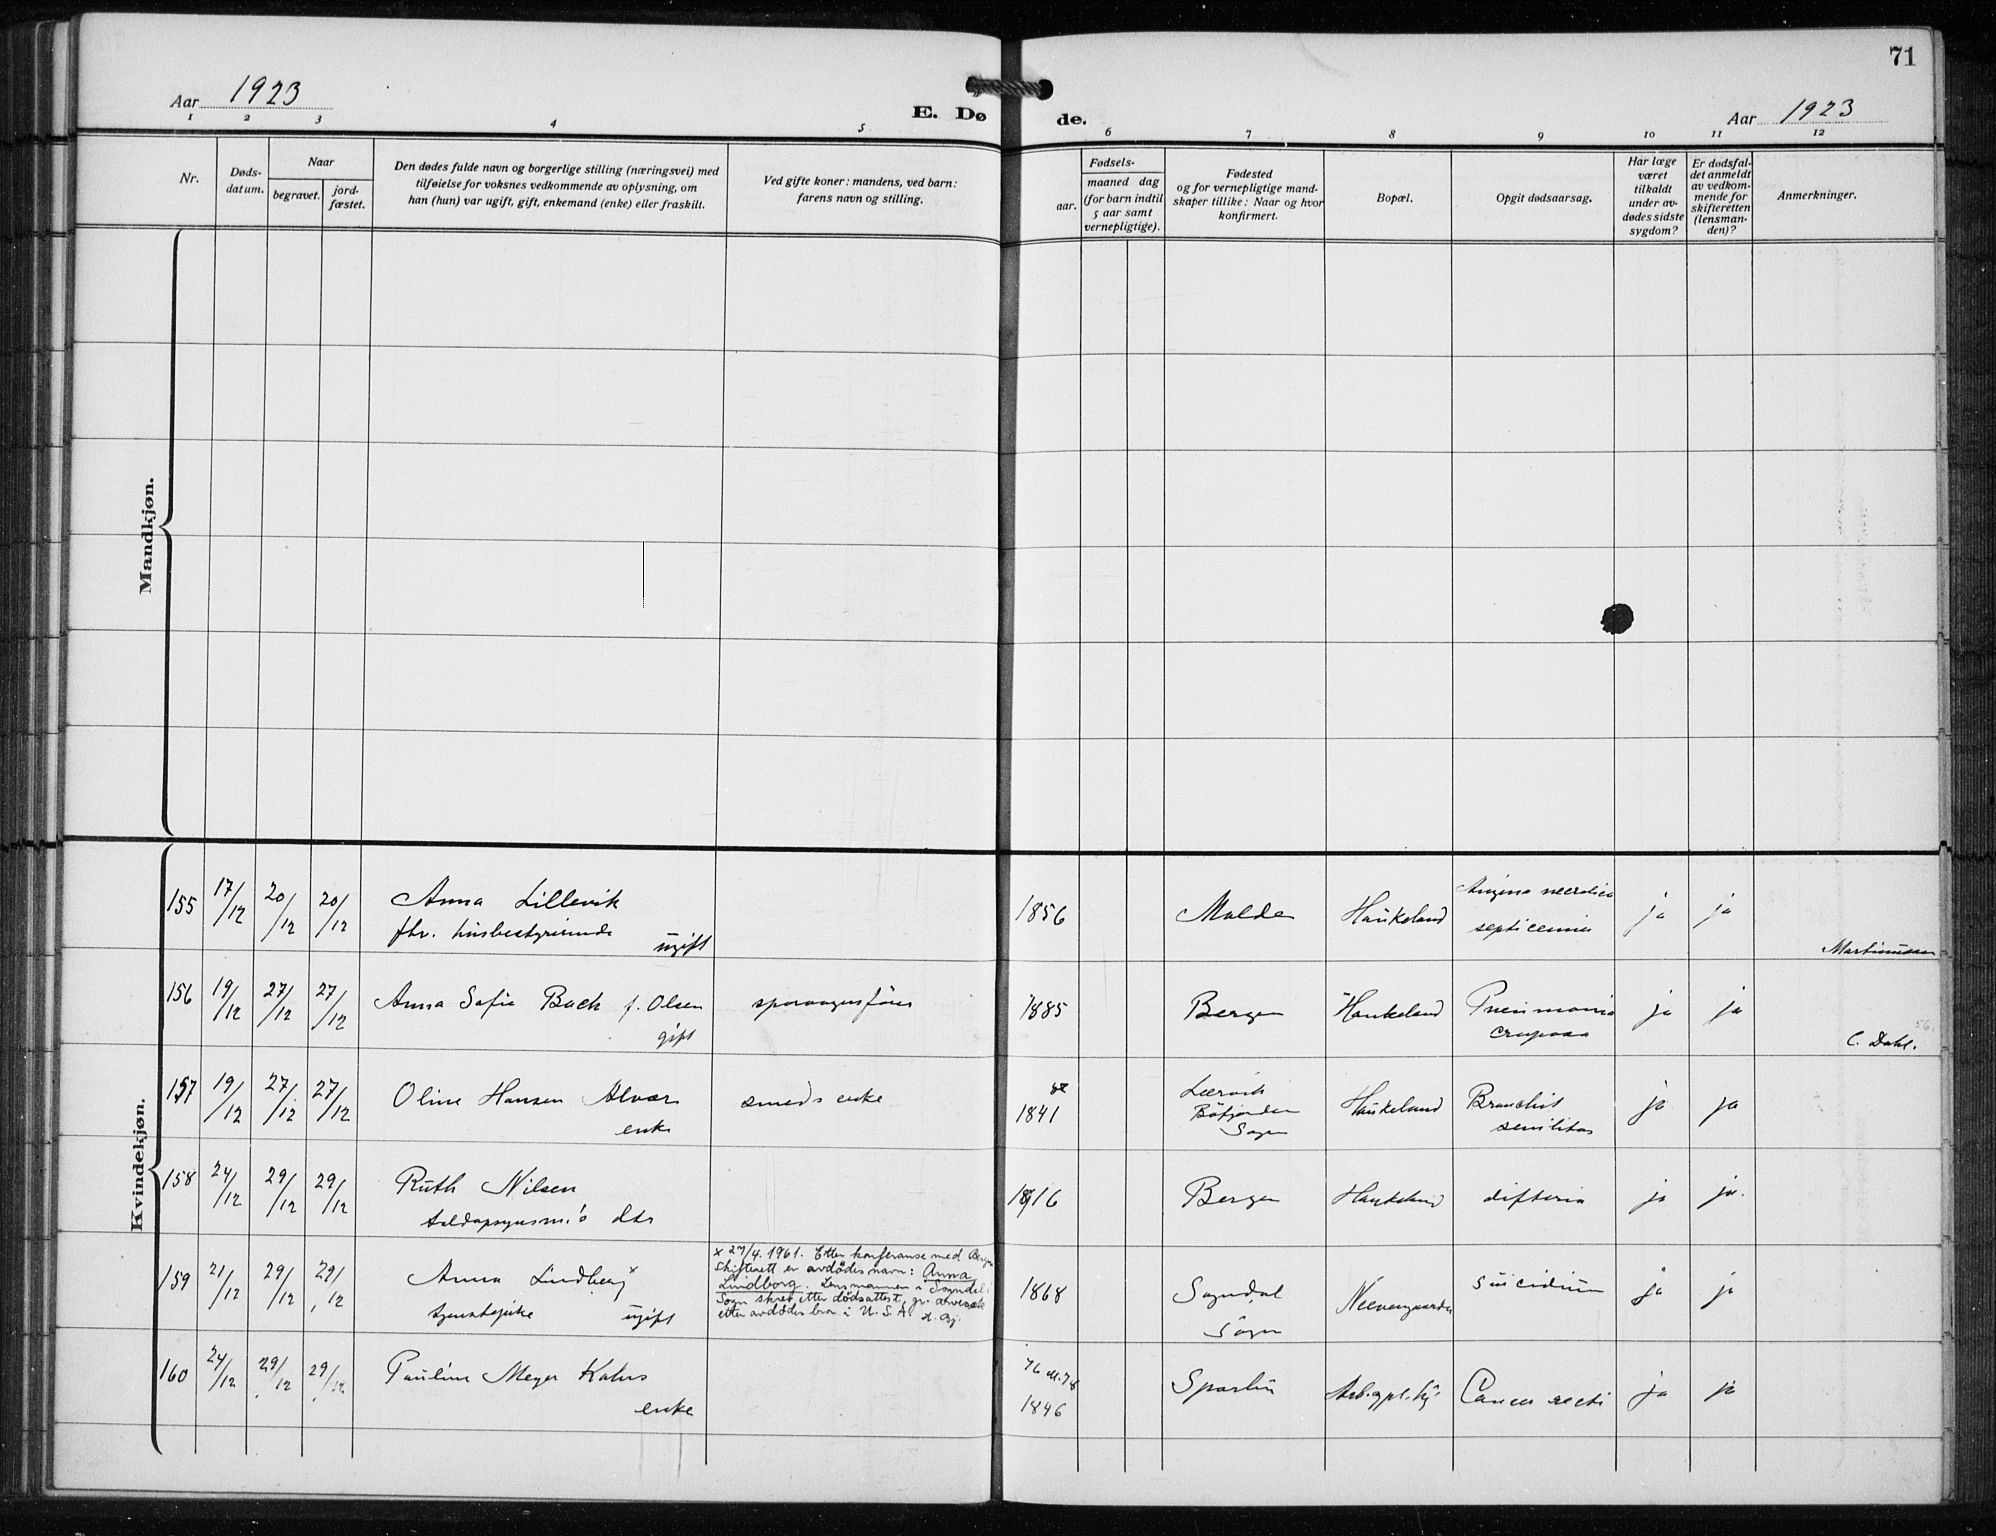 71
Aar 1923
E. Døde.
Aar 1923
1 2 3 4 5 6 7 8 9 10 11 12
Nr.
Døds-
datum.
Naar
begravet.
jord-
fæstet.
Den dødes fulde navn og borgerlige stilling (næringsvei) med
tilføielse for voksnes vedkommende av oplysning, om
han (hun) var ugift, gift, enkemand (enke) eller fraskilt.
Ved gifte koner: mandens, ved barn:
farens navn og stilling.
Fødsels-
aar.
maaned dag
(for barn indtil
5 aar samt
vernepligtige).
Fødested
og for vernepligtige mand-
skaper tillike: Naar og hvor
konfirmert.
Bopæl.
Opgit dødsaarsag.
Har læge
været
tilkaldt
under av-
dødes sidste
sygdom?
Er dødsfal-
det anmeldt
av vedkom-
mende for
skifteretten
(lensman-
den)?
Anmerkninger.
Mandkjøn.
Kvindekjøn.
155 17/12 20/12 20/12 Anna Lillevik 1856 Molde Haukeland ja ja
fhv. husbestyrerinde ugift
septicemia
156 19/12 27/12 27/12 Anna Sofie Buch f. Olsen 1885 Bergen Haukeland Pneumonia ja ja
gift
cruposa
C. Dahl.
157 19/12 27/12 27/12 Oline Hansen Alvær smeds enke 1841 Leervik Haukeland Bronchit ja ja
enke
Sogn
senilitas
158 24/12 29/12 29/12 Ruth Nilsen 1916 Bergen Haukeland difteria ja ja.
dtr
159 21/12 29/12 29/12 Anna Lindberg x 1868 Sogndal suicidium ja ja
ugift
Sogn
x 27/4. 1961. Etter konferanse med Bergen
Skifterett er avdødes navn: Anna
Lindborg. Lensmannen i Sogndal i
Sogn skrev etter dødsattest,
etter avdødes bror i U.S.A.
160 24/12 29/12 29/12 Pauline Meyer Kahrs 1846 Cancer recti ja ja
enke